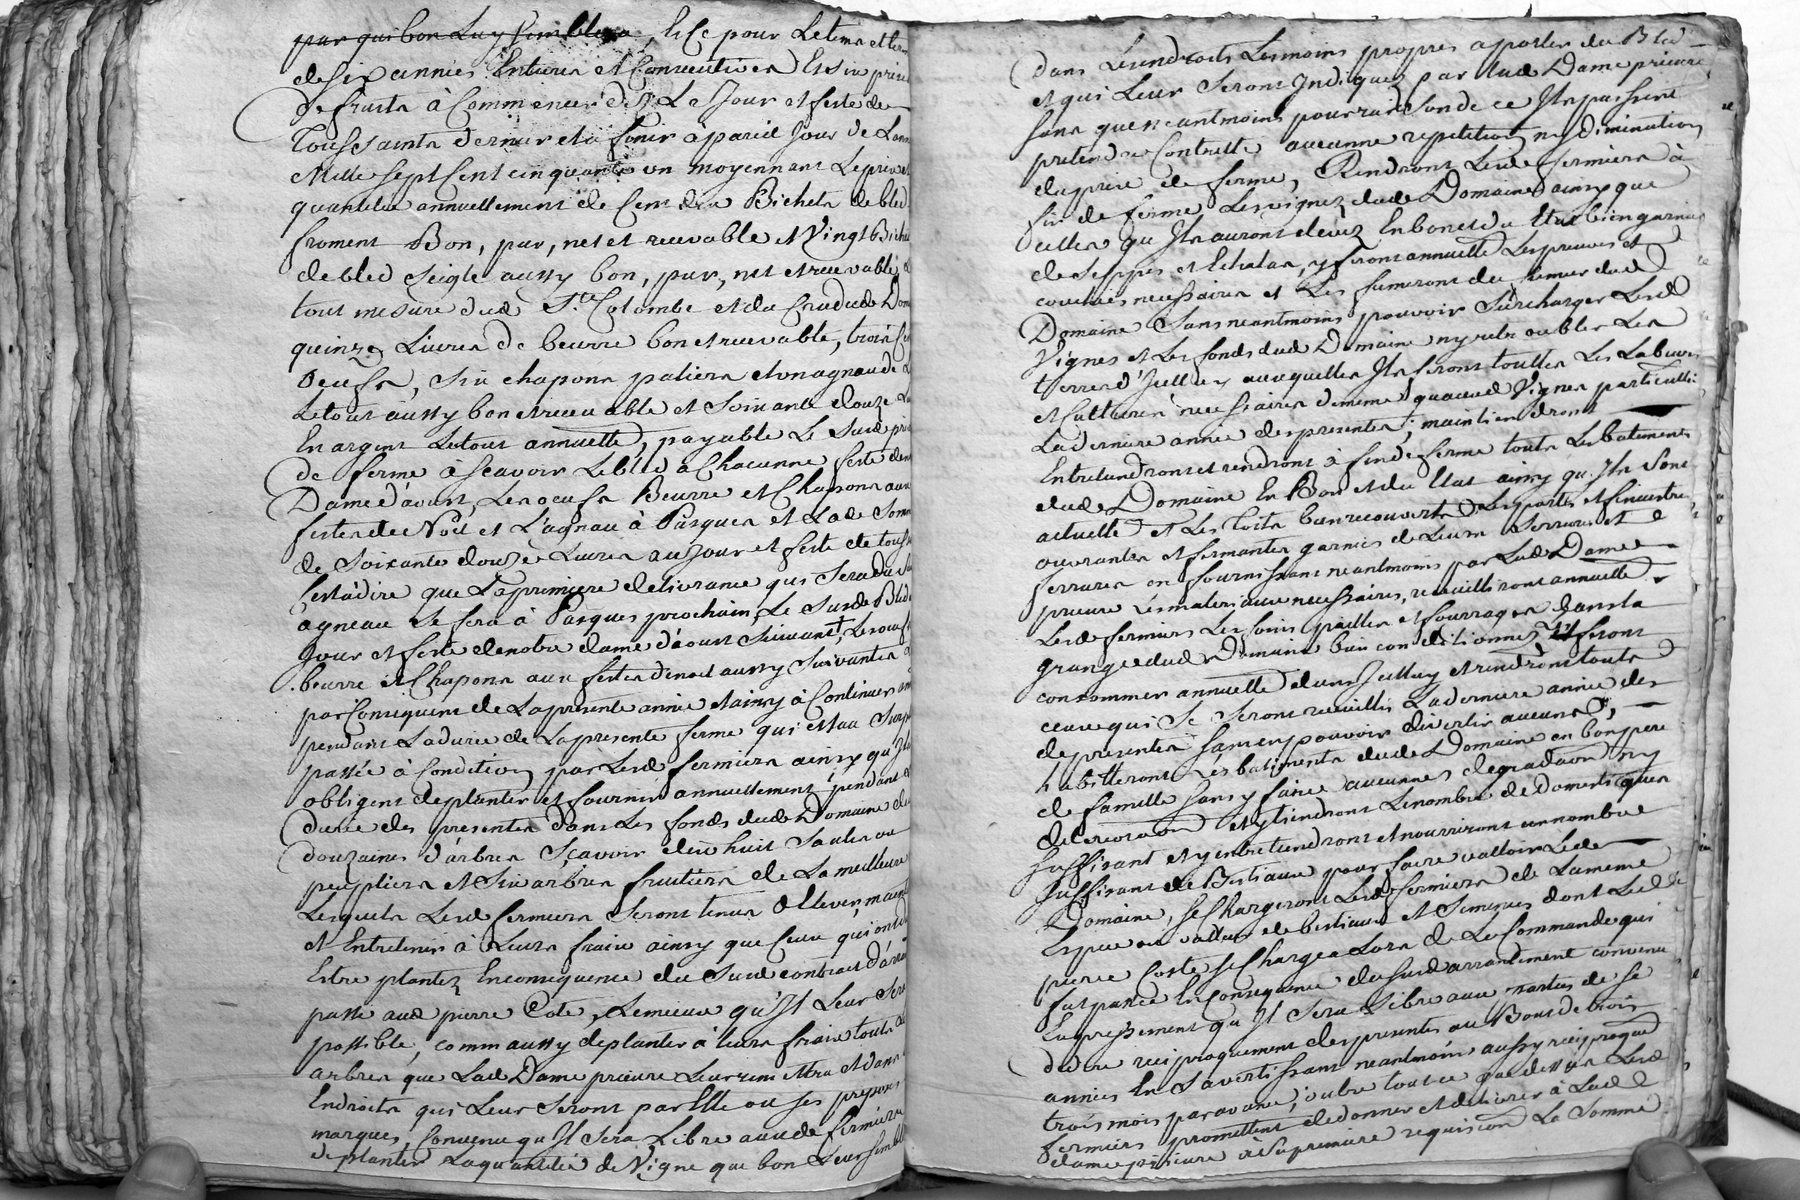 par qui bon Luy semblera, Et Ce pour Le tems et terme
de six années Entieres et Consecutives Et six prises
de fruits à Commencer dez Le Jour et feste de
Toussaints dernier et à finir à pareil Jour de Lann
Mille sept Cent cinquante un moyennant Le prix et
quantité annuellement de Cent dix Bichets de bled
froment Bon, pur, net et recevable et Vingt Bichets
de bled seigle aussy bon, pur, net et recevable, le
tout mesure dud St. Colombe et du Cru dud Dom
quinze Livres de beurre bon et recevable, trois Cent
Oeufs, six chapons paliers et un agneau de
Le tout aussy bon et recevable et soixante douze Liv
En argent Le tout annuellt, payable Le susd prix
de ferme à scavoir Le bled à Chacunne feste de n
Dame d'aoust, Les oeufs Beurre et Chapons aux
festes de Noël et L'agneau à Pasques et Lad Somme
de soixante douze Livres au Jour et feste de touss
c'est à dire que La premiere delivrance qui sera du
agneau se fera à Pasques prochain, Le susd Bled
Jour et feste de notre dame d'aoust suivant, Les oeufs
beurre et Chapons aux festes de noël aussy suivantes
par Consequent de La presente année et ainsy à Continuer
pendant La durée de La presente ferme qui est au surplus
passée à Condition par Lesd fermiers ainsy qu'Ils
obligent de planter et fournir annuellement pendant
durée des presentes dans Les fonds dud Domaine
douzaines d'arbres Scavoir dix huit saules ou
peupliers et six arbres fruitiers de La meilleure
Lesquels Lesd fermiers seront tenus d'Elever
et Entretenir à Leurs fraix ainsy que Ceux qui ont
Estre plantez En consequence du susd contract d'arr
passé aud pierre Coste, Le mieux qu'Il Leur sera
possible, comm aussy de planter à leurs fraix touts
arbres que Lad Dame prieure Leur remettra et dans
Endroits qui Leur seront par Elle ou ses preposés
marqués, Convenu qu'Il sera Libre auxd fermiers
de planter La quantité de Vigne que bon Leur semble
dans Les endroits Les moins propres a porter du Bled
et qui Leur seront Indiquez par Lad Dame prieure
sans que neantmoins pour raison de ce Ils puissent
pretendre Contrelle aucunne repetition ny diminution
du prix de ferme, Rendront Lesd fermiers à
fin de ferme Les vignes dud Domaine ainsy que
celles qu'Ils auront elevez En bon et du Etat bien garnies
de seppes et Echalas, y feront annuellt Les preuves et
couvées necessaires et Les fumeront du fumier dud
Domaine sans neantmoins pouvoir surcharger Lesd
Vignes et Les fonds dud Domaine ny en oublier Les
terres d'Jullieu auxquelles Ils feront touttes Les Labeurs
et Cultures necessaires de meme quauxd Vignes particulliert
La derniere année des presentes; maintiendront
Entretiendront et rendront à fin de ferme touts Les batiments
dud Domaine En Bon et du Etat ainsy qu'Ils sont
actuellt et Les toits bien recouverts, Les portes et fenestres
ouvrantes et fermantes garnies de Leurs serrures et
ferrures en fournissant neantmoins par Lad Dame
prieure Les materiaux necessaires, recueilliront annuellt
Lesd fermiers Les foins pailles et fourrages dans La
grange dud Domaine bien conditionnez Et feront
consommer annuellt dans Jullieu et rendront touts
ceux qui se seront recueillis La derniere année des
de presentes sans en pouvoir divertir aucuns,
habitteront Les batiments dud Domaine en bon pere
de famille sans y faire aucunnes degradaon ny
deterioraon et y tiendront Le nombre de Domestiques
suffisant et y entretiendront et nourriront un nombre
suffisant de Bestiaux pour faire valloir Led
Domaine, se Chargeront Lesd fermiers de La meme
Espece ou valleur de bestiaux et semences dont Led
pierre Coste se Chargea Lors de La Commande qui
fut passée En Consequence du susd arrantement convenu
Expressement qu'Il sera Libre aux parties de se
dedire reciproquement des presentes au Bout de trois
années En s'avertissant neantmoins aussy reciproquet
trois mois par avance, outre tout ce que dessus Lesd
fermiers promettent de donner et delivrer à Lad
dame prieure à sa premiere requision La Somme